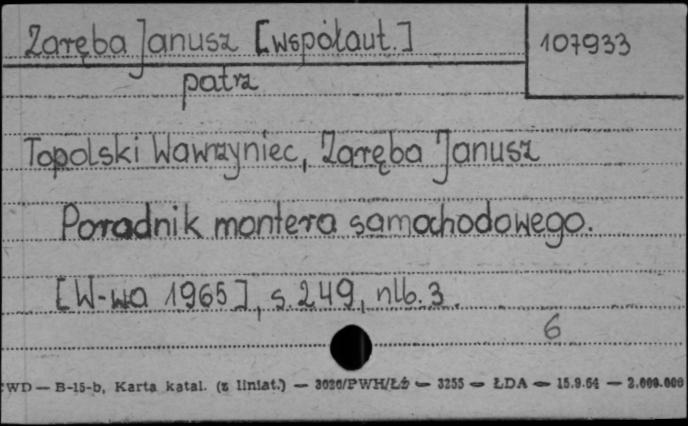 Zaręba Janusz [współaut.]
107933
patrz
Topolski Wawrzyniec, Zaręba Janusz
Poradnik montera samochodowego.
[W-wa 1965], s. 249, nlb. 3.
6
CWD — B-15-b, Karta katal. (z liniat.) — 3020/PWH/Łź — 3255 — ŁDA — 15.9.64 — 2.000.000